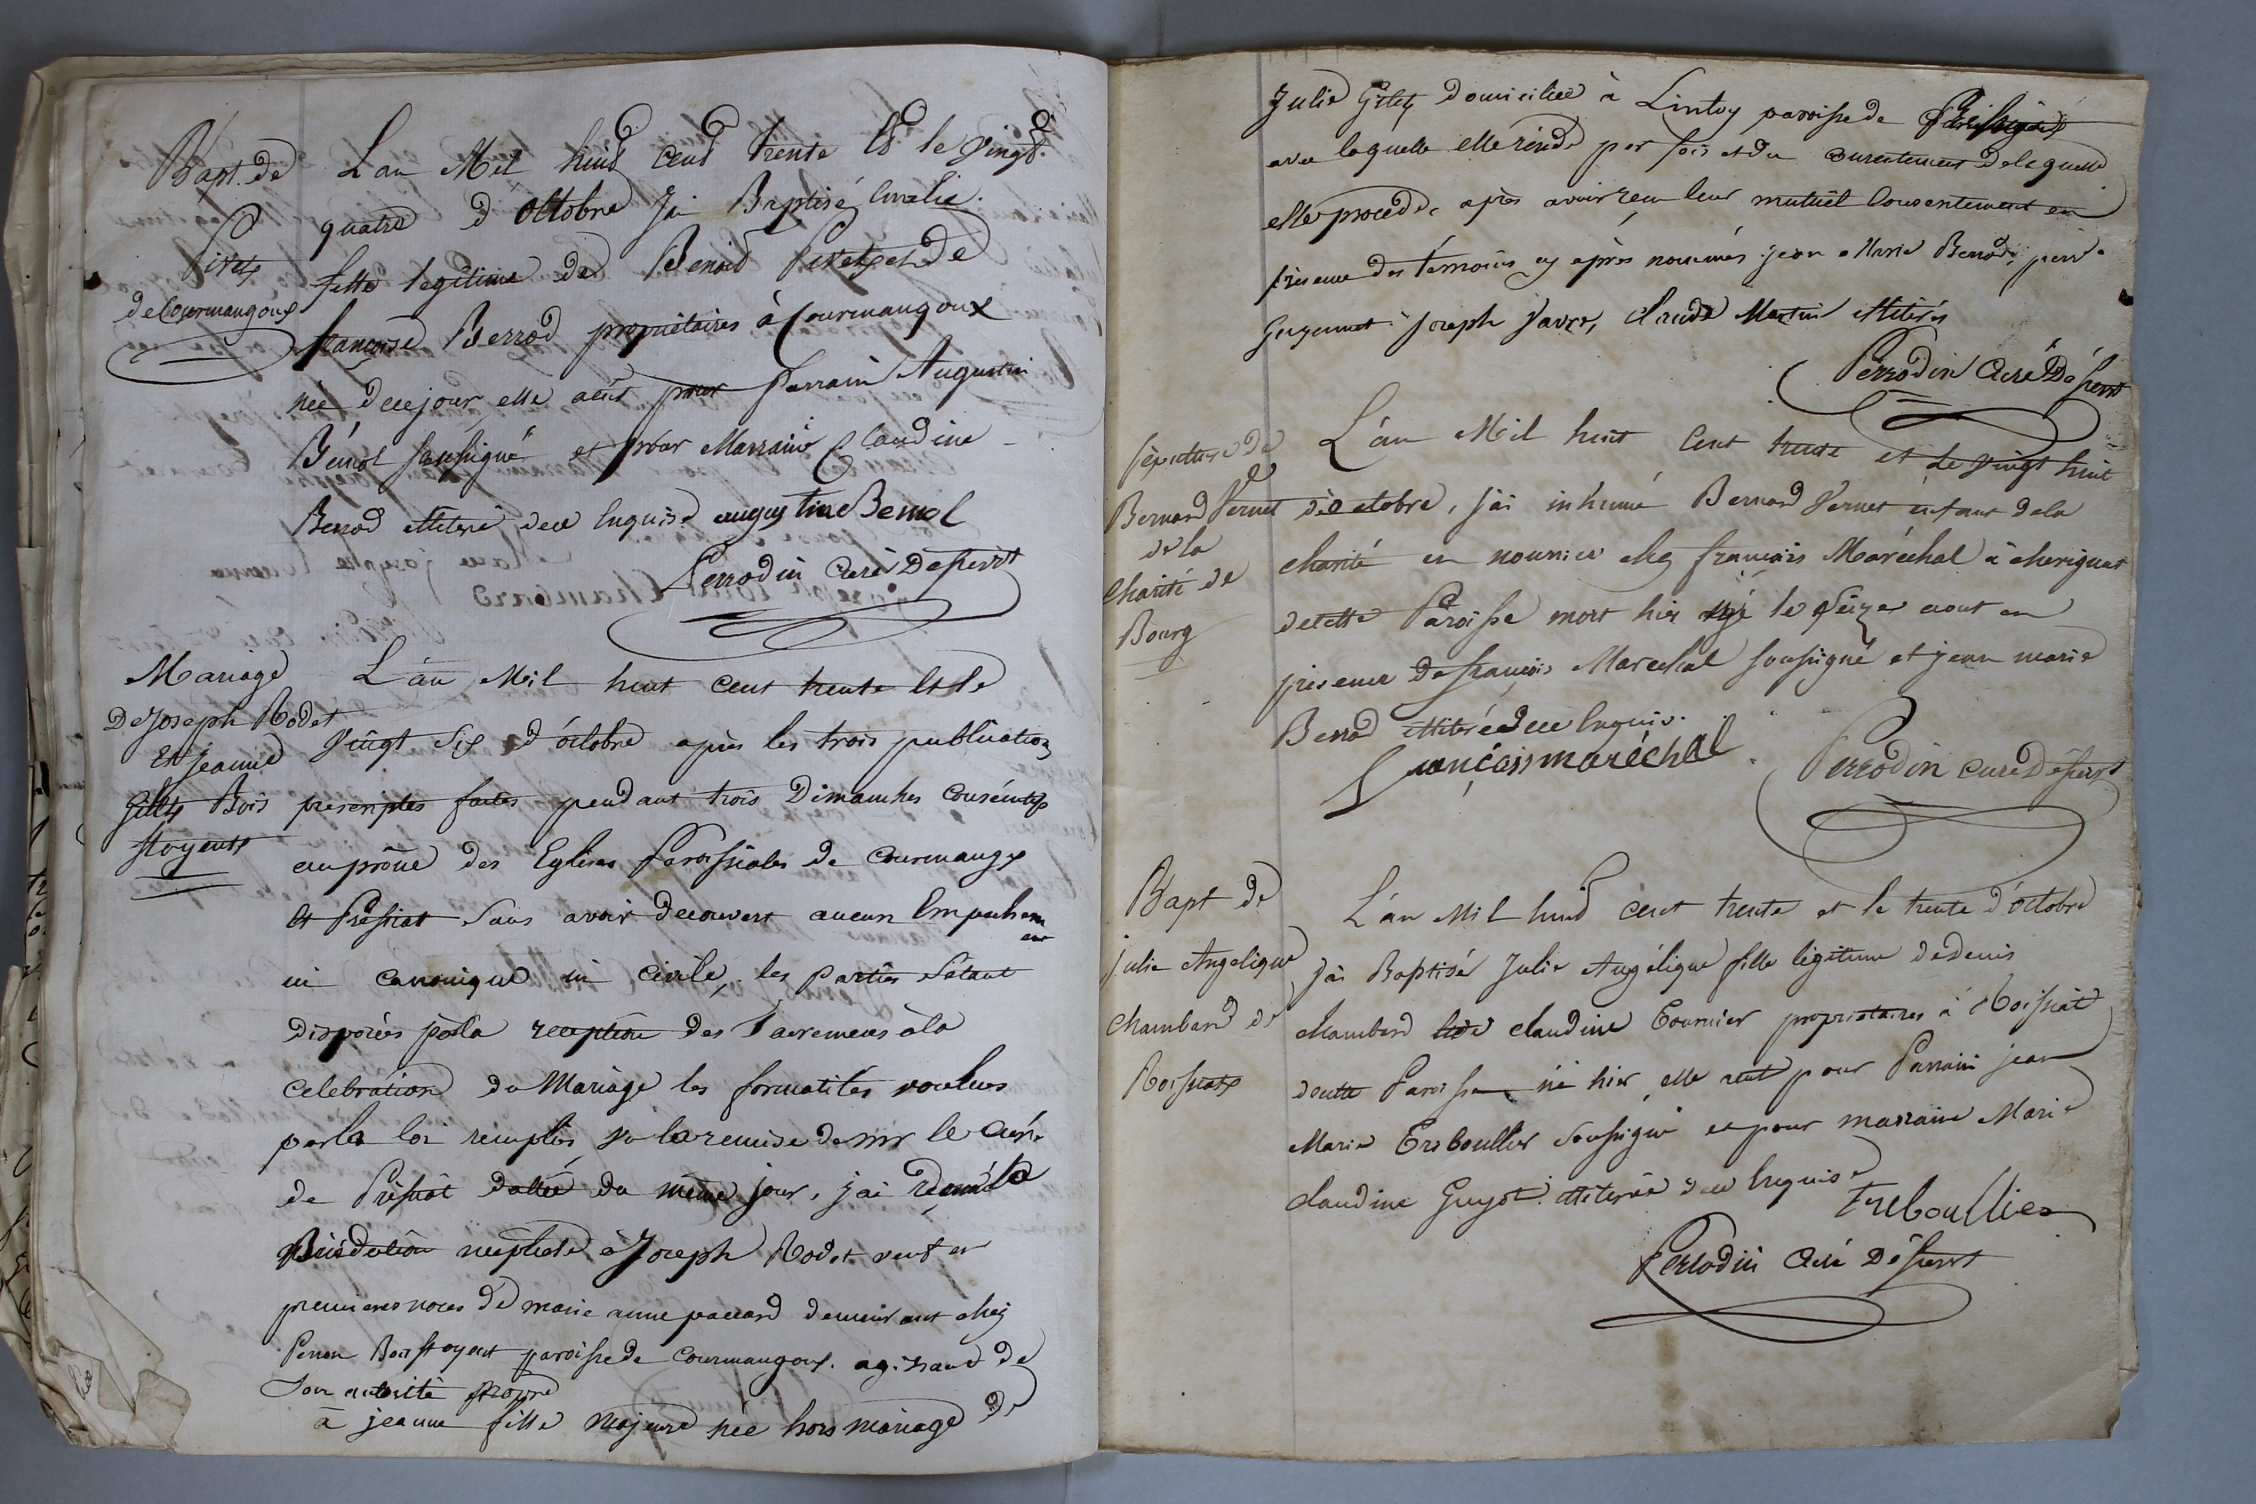 Bapt. de
Pivetz
de Courmangoux
L'an Mil huit cent trente Et le Vingt
quatre d'octobre J'ai Baptisé Emelie
fille legitime de Benoit Pivetz et de
françoise Berrod propriétaires à Courmangoux
née de ce jour elle a eut pour Parrain Augustin
Benoit soussigné et pour Marraine Claudine
Berrod illitéré de ce Enquise augustine Benoit
Perrodin Curé Dessert
Mariage
De Joseph Rodet
et jeanne
Gilletz Bois
stoyentz
L'an Mil huit cent trente et le
Vingt six d'octobre apres les trois publication
prescriptes faites pendant trois Dimanches Consécutifs
au prône des Eglises Paroissiales de Courmangx
et Pressiat sans avoir decouvert aucun Empechem
ent
ni canonique ni civile, les parties s'étant
disposées par la reception des Sacremens à la
celebration du Mariage les formalités voulues
par la loi remplies, vu la remise de mr le Curé
de Préssiat dattée du même jour, j'ai donné la
Bénédiction nuptiale à Joseph Rodet veuf en
premieres noces de marie anne paccard demeurant chez
Perron Boisstoyent paroisse de Courmangoux. agissant de
son autorité propre
à jeanne fille Majeure née hors mariage de
Julie Giletz domiciliée à Lintoy paroisse de
avec laquelle elle réside par fois et du consentement de laquelle
elle procede, après avoir reçu leur mutuël Consentement en
présence des témoins cy après nommés jean Marie Berrod, pierre
Guyennet Joseph Favre, Claude Martin illitérés
Perrodin Curé Dessert
sépulture de
Bernard Vernet
de la
Charité de
Bourg
L'an Mil huit Cent trente et le vingt huit
d'octobre, j'ai inhumé Bernard Vernet enfant de la
charité en nourrice chez françois Maréchal à chevignat
de cette Paroisse mort hier agé le seize aout en
présence de françois Marechal soussigné et jean marie
Berrod illitéré de ce Enquis.
françois maréchal
Perrodin curé Dessert
Bapt de
julie Angelique
Chambard de
Roissiatz
L'an Mil huit cent trente et le trente d'octobre
j'ai Baptisé Julie Angélique fille légitime de denis
chambard et de claudine Fournier propriétaires à Roissiat
de cette Paroisse né hier, elle a eut pour Parrain jean
Marie Treboullier soussigné et pour marraine Marie
claudine Guyot illiterée de ce Enquise
Treboullier
Perrodin Curé Dessert